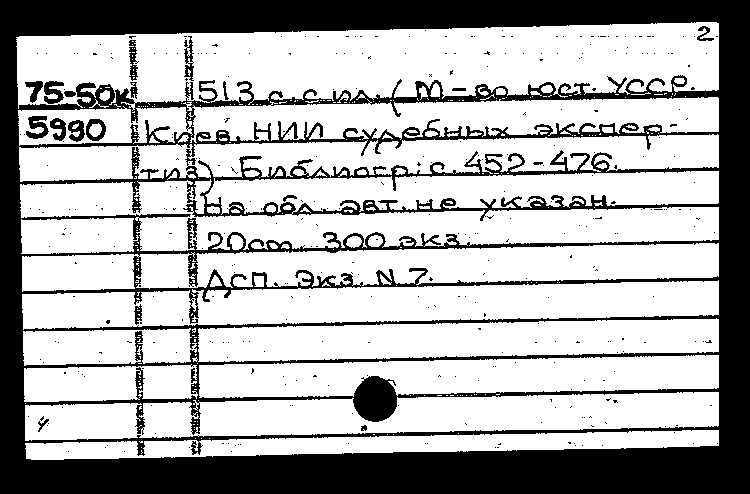 2
75-50к 513 с. с ил. (М-во юст. УССР.
5990 Киев. НИИ судебных экспер-
тиз). Библиогр: с. 452-476.
На обл. авт. не указан.
20см. 300 экз.
Дсп. Экз. N 7.